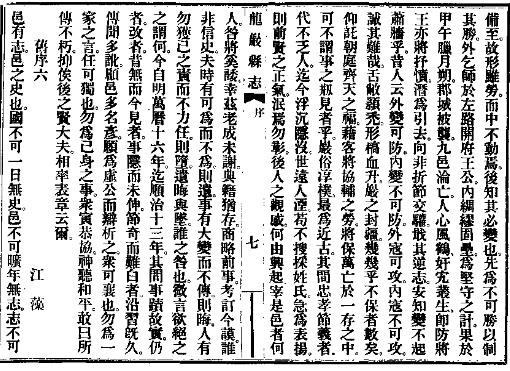 備至故形雖勞而中不動焉後知其必變也先為不可勝以制
其勝外乞師於左路開府王公內綢繆固壘為堅守之計果於
甲午臘月朔郡城被襲九邑淪亡人心風鶴奸宄叢生即防將
王亦將抒憤潛為引去向非折節交驩戢其逆志安知變不起
蕭牆乎昔人云外變可防內變不可防外寇可攻內寇不可攻
誠其難哉舌敝穎禿形槁血升嚴之封疆幾幾乎不保者數矣
仰託朝庭齊天之福藉客將協輔之勞將保萬亡於一存之中
可不謂事之㓛見者乎嚴俗淳樸最為近古其間忠孝節義者
代不乏人迄今浮沉隱沒世遠人湮苟不搜採姓氏急為表揚
則前賢之正氣泯焉勿彰後人之觀感何由興起宰是邑者何
龍巖縣志 序 七
人咎將奚諉幸茲老成未謝典籍猶存商略前事考訂今謨誰
非信史夫時有可為而不為則遺事有大變而不傳則晦人有
勿獲已之責而不力任則墮遺晦與墜誰之咎也徵言欲絕之
之謂何今自明萬曆十六年迄順治十三年其間事蹟故實仍
者改者昔無而今見者事隱而未伸節奇而雖白者沿習既久
傳聞多訛顧邑多名彥願為虛公而辯析之衆可襄也勿為一
家之言任可獨也勿為己身之事衆寅恭協神聽和平敢曰所
傳不朽抑俟後之賢大夫相率表章云爾
舊序六 江藻
邑有志邑之史也國不可一日無史邑不可曠年無志志不可